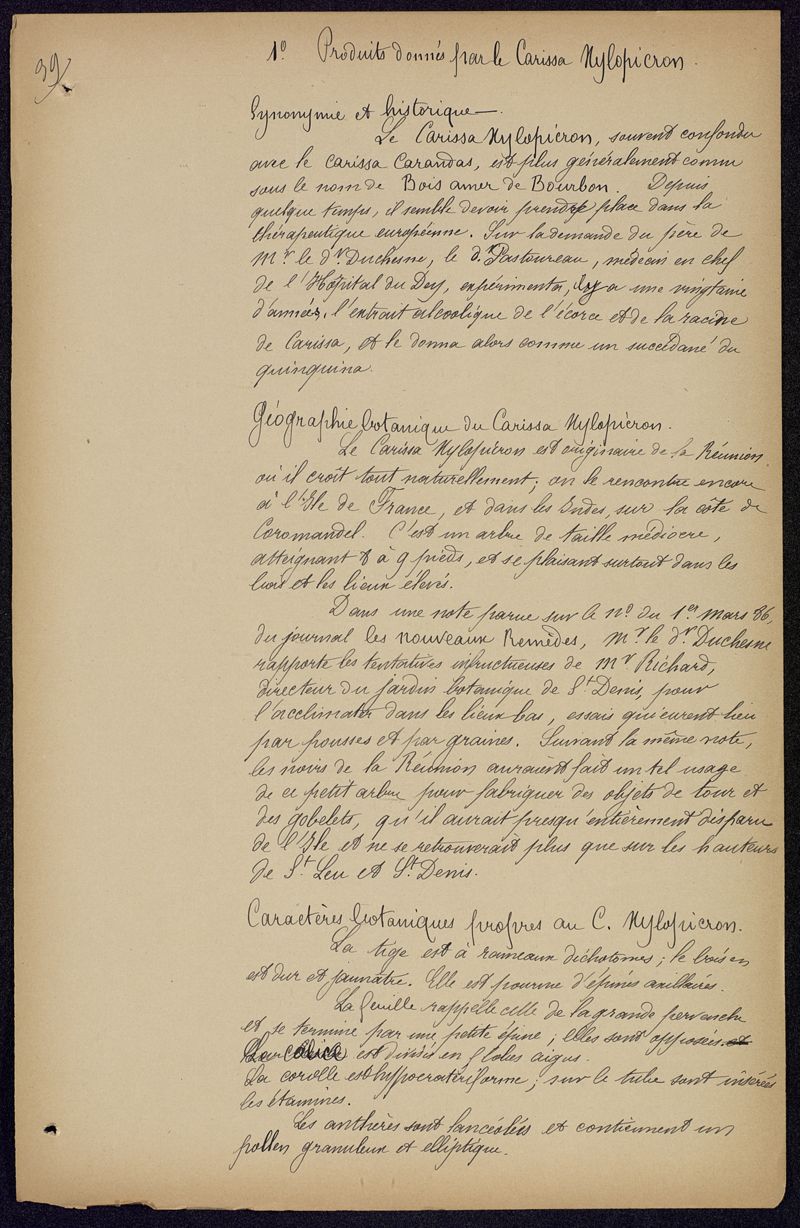 39
1º Produits donnés par le Carissa Xylopicron.
Synonymie et historique.
Le Carissa Xylopicron, souvent confondu
avec le Carissa Carandas, est plus généralement connu
sous le nom de Bois amer de Bourbon. Depuis
quelque temps, il semble devoir prendre place dans la
thérapeutique européenne. Sur la demande du père de
Mr le dr Duchesne, le dr Pastoureau, médecin en chef
de l'Hôpital du Dey, expérimenta, il y a une vingtaine
d'années, l'extrait alcoolique de l'écorce et de la racine
de Carissa, et le donna alors comme un succédané du
quinquina.
Géographie botanique du Carissa Xylopicron.
Le Carissa Xylopicron est originaire de la Réunion
où il croît tout naturellement; on le rencontre encore
à l'Ile de France, et dans les Indes, sur la côte de
Coromandel. C'est un arbre de taille médiocre,
atteignant 8 à 9 pieds, et se plaisant surtout dans les
bois et les lieux élevés.
Dans une note parue sur le nº du 1er mars 86,
du journal les nouveaux Remèdes, Mr le dr Duchesne
rapporte les tentatives infructueuses de Mr Richard,
directeur du jardin botanique de St Denis, pour
l'acclimater dans les lieux bas, essais qui eurent lieu
par pousses et par graines. Suivant la même note,
les noirs de la Réunion auraient fait un tel usage
de ce petit arbre pour fabriquer des objets de tour et
des gobelets, qu'il aurait presqu'entièrement disparu
de l'Ile et ne se retrouverait plus que sur les hauteurs
de St Leu et St Denis.
Caractères botaniques propres au C. Xylopicron.
La tige est à rameaux dichotomes; le bois en
est dur et jaunâtre. Elle est pourvue d'épines axillaires.
La feuille rappelle celle de la grande pervenche
et se termine par une petite épine; elles sont opposées et
Le calice est divisé en 5 lobes aigus.
La corolle est hypocratériforme; sur le tube sont insérées
les étamines.
Les anthères sont lancéolées et contiennent un
pollen granuleux et elliptique.